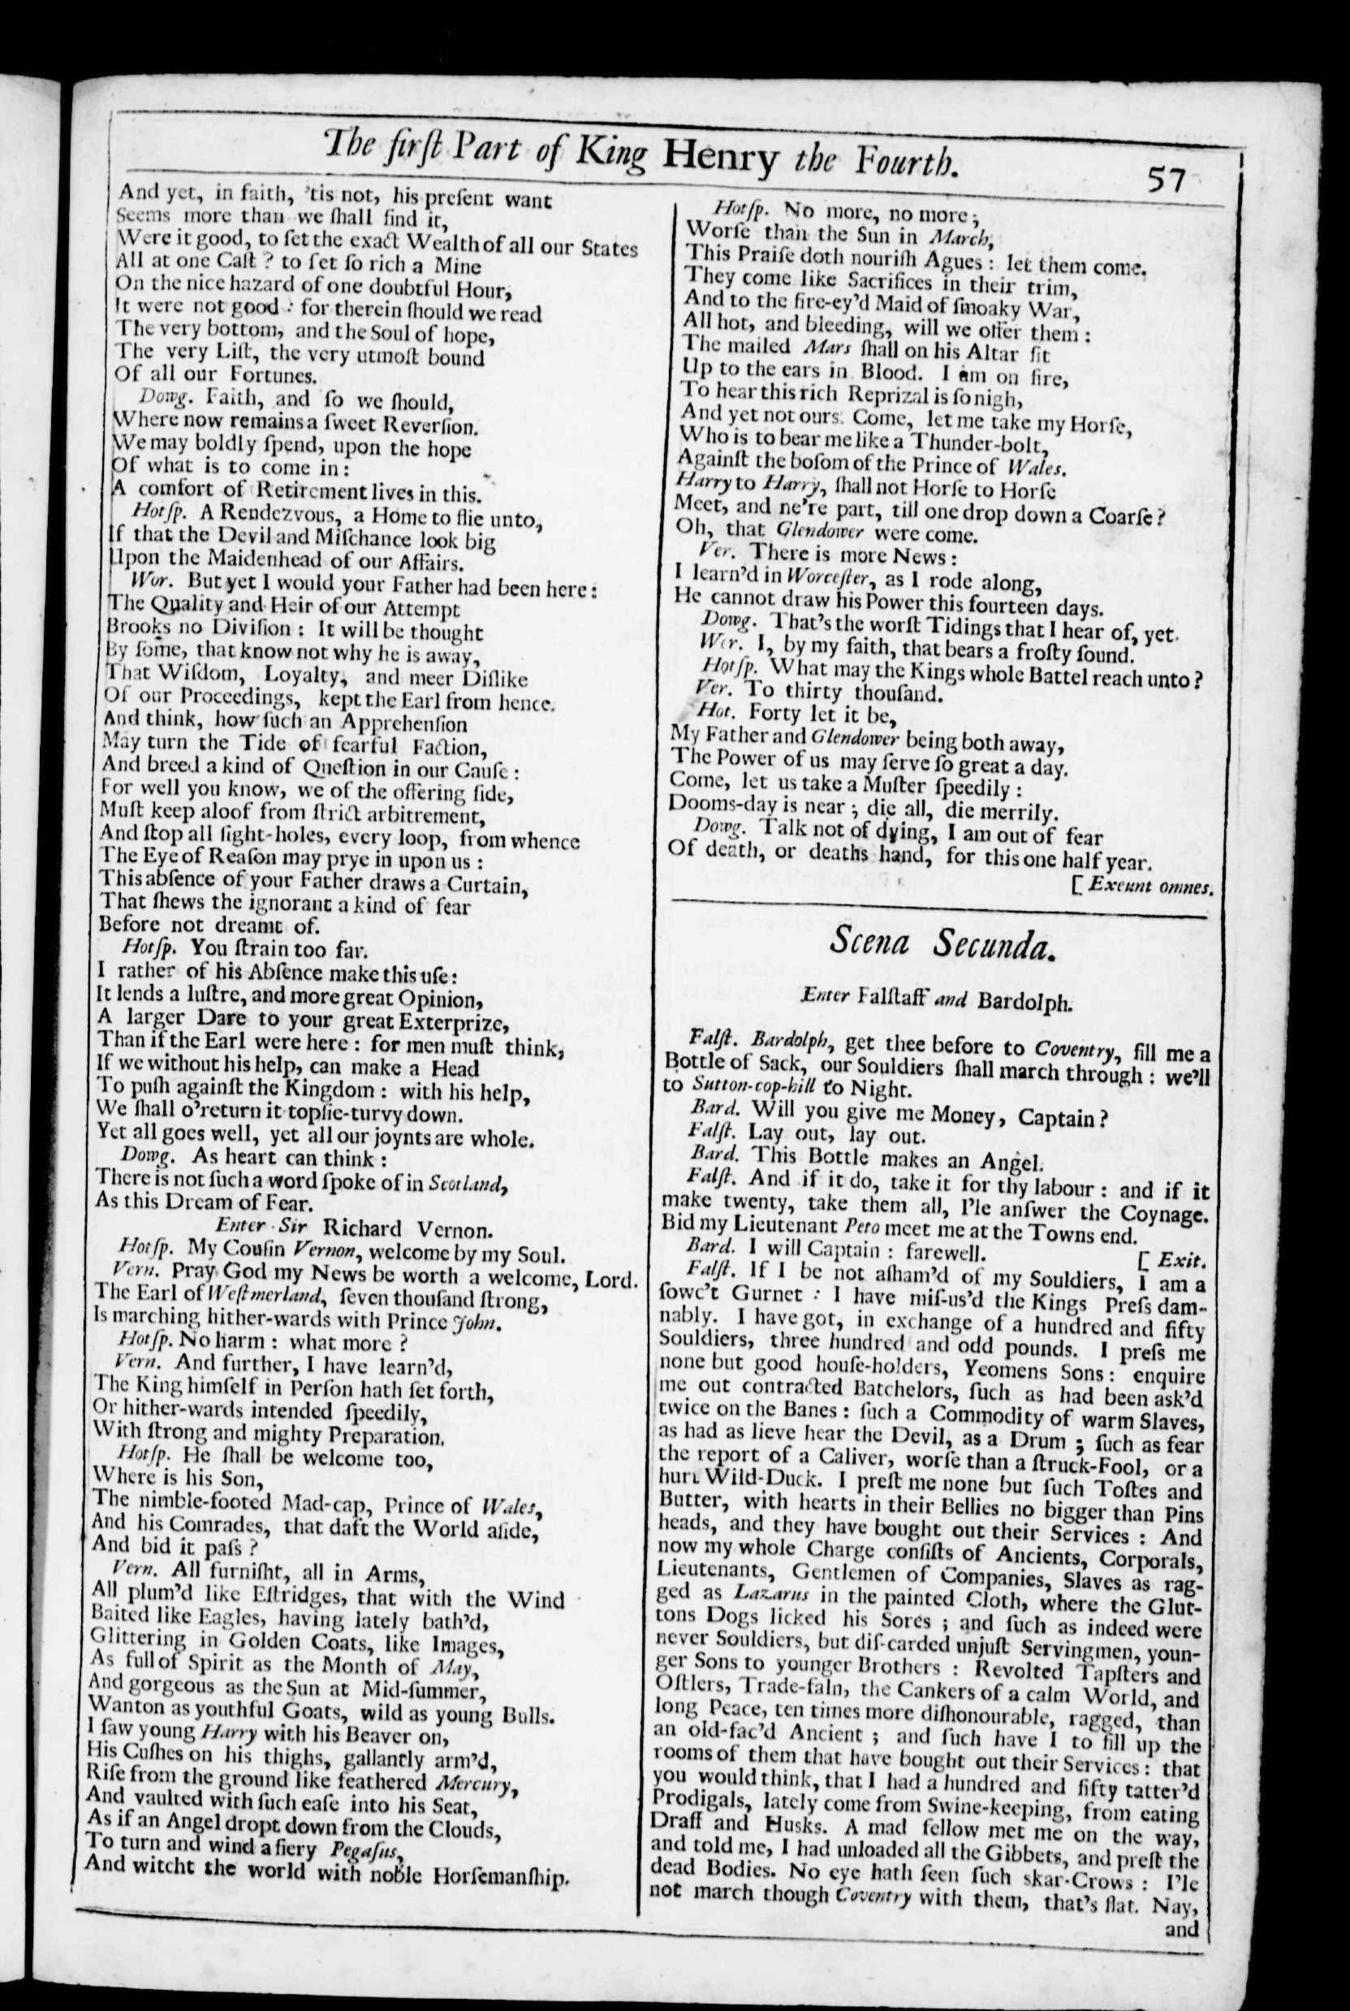 The firſt Part of King Henry the Fourth.
57
And yet, in faith, 'tis not, his preſent want
Seems more than we ſhall find it,
Were it good, to ſet the exact Wealth of all our States
All at one Caſt ? to ſet ſo rich a Mine
On the nice hazard of one doubtful Hour,
It were not good : for therein ſhould we read
The very bottom, and the Soul of hope,
The very Liſt, the very utmoſt bound
Of all our Fortunes.
Dowg. Faith, and ſo we ſhould,
Where now remains a ſweet Reverſion.
We may boldly ſpend, upon the hope
Of what is to come in :
A comfort of Retirement lives in this.
Hotſp. A Rendezvous, a Home to flie unto,
If that the Devil and Miſchance look big
Upon the Maidenhead of our Affairs.
Wor. But yet I would your Father had been here :
The Quality and Heir of our Attempt
Brooks no Diviſion : It will be thought
By ſome, that know not why he is away,
That Wiſdom, Loyalty, and meer Diſlike
Of our Proceedings, kept the Earl from hence.
And think, how ſuch an Apprehenſion
May turn the Tide of fearful Faction,
And breed a kind of Queſtion in our Cauſe :
For well you know, we of the offering ſide,
Muſt keep aloof from ſtrict arbitrement,
And ſtop all ſight-holes, every loop, from whence
The Eye of Reaſon may prye in upon us :
This abſence of your Father draws a Curtain,
That ſhews the ignorant a kind of fear
Before not dreamt of.
Hotſp. You ſtrain too far.
I rather of his Abſence make this uſe :
It lends a luſtre, and more great Opinion,
A larger Dare to your great Exterprize,
Than if the Earl were here : for men muſt think,
If we without his help, can make a Head
To puſh againſt the Kingdom : with his help,
We ſhall o'return it topſie-turvy down.
Yet all goes well, yet all our joynts are whole.
Dowg. As heart can think :
There is not ſuch a word ſpoke of in Scotland,
As this Dream of Fear.
Enter Sir Richard Vernon.
Hotſp. My Couſin Vernon, welcome by my Soul.
Vern. Pray God my News be worth a welcome, Lord.
The Earl of Weſtmerland, ſeven thouſand ſtrong,
Is marching hither-wards with Prince John.
Hotſp. No harm : what more ?
Vern. And further, I have learn'd,
The King himſelf in Perſon hath ſet forth,
Or hither-wards intended ſpeedily,
With ſtrong and mighty Preparation.
Hotſp. He ſhall be welcome too,
Where is his Son,
The nimble-footed Mad-cap, Prince of Wales,
And his Comrades, that daft the World aſide,
And bid it paſs ?
Vern. All furniſht, all in Arms,
All plum'd like Eſtridges, that with the Wind
Baited like Eagles, having lately bath'd,
Glittering in Golden Coats, like Images,
As full of Spirit as the Month of May,
And gorgeous as the Sun at Mid-ſummer,
Wanton as youthful Goats, wild as young Bulls.
I ſaw young Harry with his Beaver on,
His Cuſhes on his thighs, gallantly arm'd,
Riſe from the ground like feathered Mercury,
And vaulted with ſuch eaſe into his Seat,
As if an Angel dropt down from the Clouds,
To turn and wind a fiery Pegaſus,
And witcht the world with noble Horſemanſhip.
Hotſp. No more, no more ;
Worſe than the Sun in March,
This Praiſe doth nouriſh Agues : let them come.
They come like Sacrifices in their trim,
And to the fire-ey'd Maid of ſmoaky War,
All hot, and bleeding, will we offer them :
The mailed Mars ſhall on his Altar ſit
Up to the ears in Blood. I am on fire,
To hear this rich Reprizal is ſo nigh,
And yet not ours. Come, let me take my Horſe,
Who is to bear me like a Thunder-bolt,
Againſt the boſom of the Prince of Wales.
Harry to Harry, ſhall not Horſe to Horſe
Meet, and ne're part, till one drop down a Coarſe ?
Oh, that Glendower were come.
Ver. There is more News :
I learn'd in Worceſter, as I rode along,
He cannot draw his Power this fourteen days.
Dowg. That's the worſt Tidings that I hear of, yet.
Wor. I, by my faith, that bears a froſty ſound.
Hotſp. What may the Kings whole Battel reach unto ?
Ver. To thirty thouſand.
Hot. Forty let it be,
My Father and Glendower being both away,
The Power of us may ſerve ſo great a day.
Come, let us take a Muſter ſpeedily :
Dooms-day is near ; die all, die merrily.
Dowg. Talk not of dying, I am out of fear
Of death, or deaths hand, for this one half year.
[ Exeunt omnes.
Scena Secunda.
Enter Falſtaff and Bardolph.
Falſt. Bardolph, get thee before to Coventry, fill me a
Bottle of Sack, our Souldiers ſhall march through : we'll
to Sutton-cop-hill to Night.
Bard. Will you give me Money, Captain ?
Falſt. Lay out, lay out.
Bard. This Bottle makes an Angel.
Falſt. And if it do, take it for thy labour : and if it
make twenty, take them all, I'le anſwer the Coynage.
Bid my Lieutenant Peto meet me at the Towns end.
Bard. I will Captain : farewell. [ Exit.
Falſt. If I be not aſham'd of my Souldiers, I am a
ſowc't Gurnet : I have miſ-us'd the Kings Preſs dam-
nably. I have got, in exchange of a hundred and fifty
Souldiers, three hundred and odd pounds. I preſs me
none but good houſe-holders, Yeomens Sons : enquire
me out contracted Batchelors, ſuch as had been ask'd
twice on the Banes : ſuch a Commodity of warm Slaves,
as had as lieve hear the Devil, as a Drum ; ſuch as fear
the report of a Caliver, worſe than a ſtruck-Fool, or a
hurt Wild-Duck. I preſt me none but ſuch Toſtes and
Butter, with hearts in their Bellies no bigger than Pins
heads, and they have bought out their Services : And
now my whole Charge conſiſts of Ancients, Corporals,
Lieutenants, Gentlemen of Companies, Slaves as rag-
ged as Lazarus in the painted Cloth, where the Glut-
tons Dogs licked his Sores ; and ſuch as indeed were
never Souldiers, but diſ-carded unjuſt Servingmen, youn-
ger Sons to younger Brothers : Revolted Tapſters and
Oſtlers, Trade-faln, the Cankers of a calm World, and
long Peace, ten times more diſhonourable, ragged, than
an old-fac'd Ancient ; and ſuch have I to fill up the
rooms of them that have bought out their Services : that
you would think, that I had a hundred and fifty tatter'd
Prodigals, lately come from Swine-keeping, from eating
Draff and Husks. A mad fellow met me on the way,
and told me, I had unloaded all the Gibbets, and preſt the
dead Bodies. No eye hath ſeen ſuch skar-Crows : I'le
not march though Coventry with them, that's flat. Nay,
and